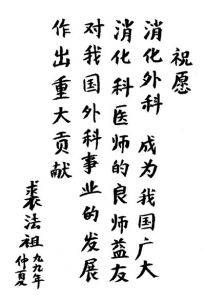 祝愿
消化外科 成为我国广大
消化科医师的良师益友
对我国外科事业的发展
作出重大贡献
裘法祖 九九年
仲夏